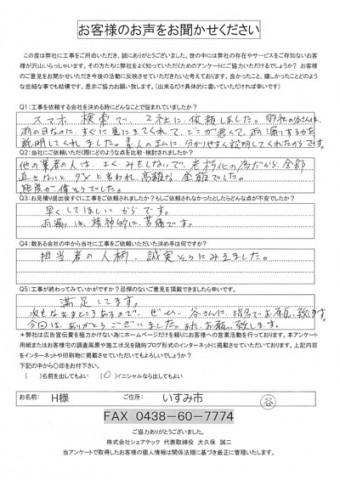 お客様のお声をお聞かせください
この度は弊社に工事をご用命いただき、誠にありがとうございました。世の中には弊社の存在やサービスをご存知ないお客様が沢山いらっしゃいます。その方たちに弊社をよく知っていただくためのアンケートにご協力いただけるでしょうか？ お客様のご意見をお聞かせいただき今後の活動に反映させていただきたいと考えております。良かったこと、嬉しかったことどのような些細な事でも結構です。是非ご協力お願い致します。（出来るだけ具体的に書いていただければ幸いです）
Q1：工事を依頼する会社を決める時にどんなことで悩まれていましたか？
スマホ検索で、2社に依頼しました。
雨の日なのに、すぐに見にきてくれて、
説明してくれました。素人の私に、分かりやすく説明してくれたからです。
他の業者の人は、よくみもしないで、老朽化の為だから、全部
直さないとダメと言われ、高額な金額でした。
Q3：お見積り提出後すぐにご依頼されましたか？もしご依頼されなかったとしたらどんな点が不安でしたか？
早くしてほしいからです。
雨漏りは、精神的に苦痛です。
Q4：数ある会社の中から当社に工事をご依頼いただいた決め手は何ですか？
担当者の人柄、誠実
Q5：工事が終わってみていかがですか？忌憚のないご意見を頂戴できましたら幸いです。
満足してます。
今回はありがとうございました。またお願い致します。
＊弊社は広告宣伝費を極力かけない為にホームページだけを頼りにお客様への営業活動を行っております。本アンケート用紙またはお客様宅の調査風景や施工状況を随時ブログ形式のインターネットに掲載させていただいております。上記内容をインターネットや印刷物に掲載させていただいてもよろしいでしょうか？
下記の中から〇印をお付け下さい。
（ ）名前を出してもよい （〇）イニシャルなら出してもよい
お名前： H様 ご住所： いすみ市
FAX 0438-60-7774
ご協力ありがとうございました。
株式会社シェアテック 代表取締役 大久保 誠二
当アンケートで取得したお客様の個人情報は関係法規に基づき厳正に管理いたします。